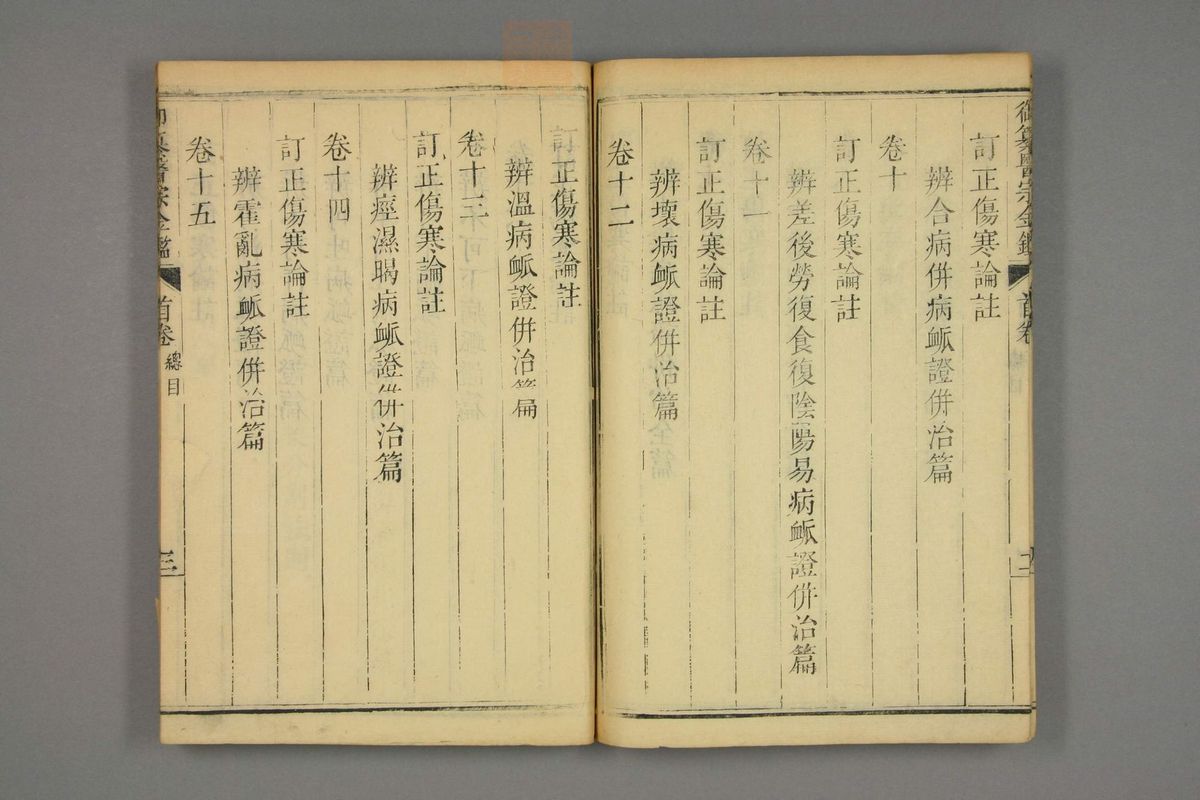 御纂醫宗金鑑
首卷
訂正傷寒論註
辨合病併病衇證併治篇
卷十
訂正傷寒論註
辨差後勞復食復陰陽易病衇證併治篇
卷十一
訂正傷寒論註
辨壞病衇證併治篇
卷十二
訂正傷寒論註
辨溫病衇證併治篇
卷十三
訂正傷寒論註
辨痙濕暍病衇證併治篇
卷十四
訂正傷寒論註
辨霍亂病衇證併治篇
卷十五
御纂醫宗金鑑
首卷
總目
三